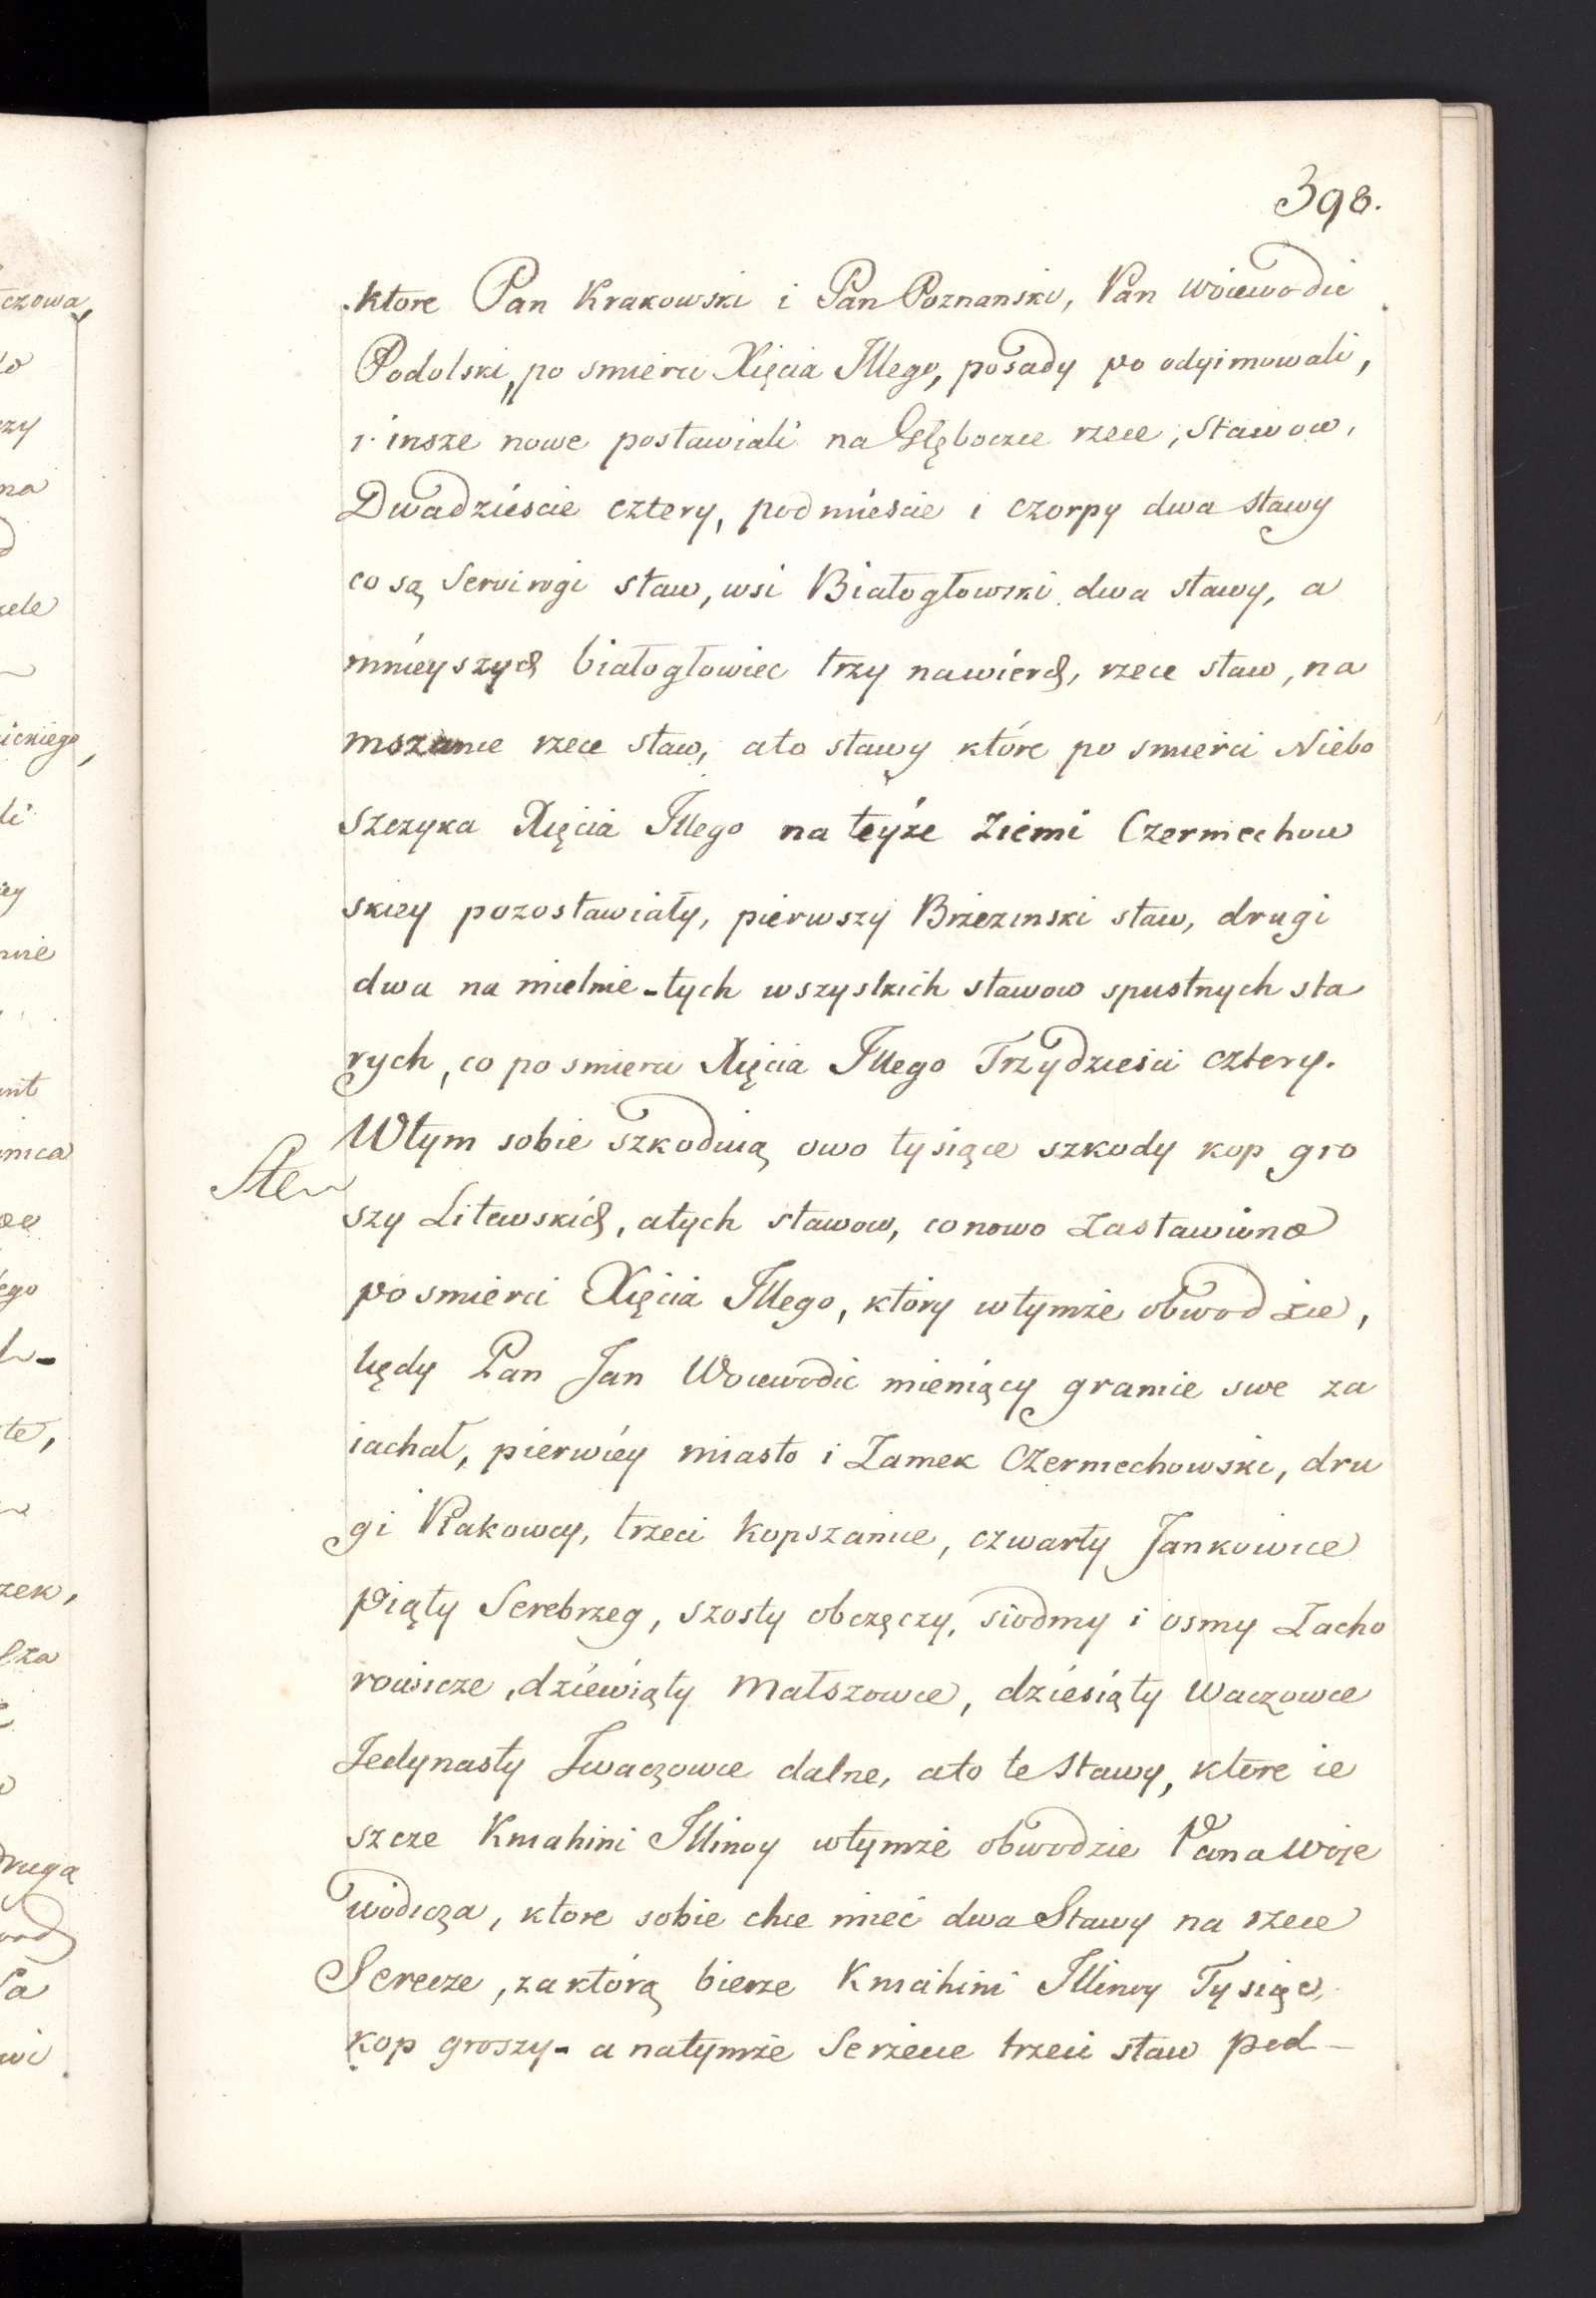 398.
ktore Pan Krakowski i Pan Poznanski, Pan Woiewodic
Podolski, po smierci Xięcia Illego, posady po odyimowali,
i insze nowe postawiali na Głęboczce rzece, stawow,
Dwadzieścia cztery, pod mieście i czorpy dwa stawy
co są staw, wsi Białogłowski dwa stawy, a
mnieyszych białogłowiec trzy nawierch, rzece staw, na
mszanie rzece staw, ato stawy które po smierci Niebo
szczyka Xięcia Illego na teyże Ziemi Czerniechow
skiey pozostawiały, pierwszy Brzezinski staw, drugi
dwa na mielnie - tych wszystkich stawow spustnych sta
rych, co po smierci Xięcia Illego Trzydzieści cztery.
Wtym sobie szkodnią owo tysiące szkody kop gro
szy Litewskich, atych stawow, co nowo zastawiono
po smierci Xięcia Illego, który wtymże obwodzie,
kędy Pan Jan Woiewodic mieniący granice swe za
iachał, pierwiey miasto i Zamek Czerniechowski, dru
gi Plakowcy, trzeci Kopszanice, czwarty Jankowice
piąty Serebrzeg, szosty obczęczy, siodmy i osmy Zacho
rowicze, dziewiąty Małszowce, dziesiąty Waczowce
Jedynasty Iwaczowce dalne, ato te Stawy, ktore ie
szcze Kniahini Illinoy wtymże obwodzie Pana Woje
wodicza, ktore sobie chce mieć dwa Stawy na rzece
Serecze, za którą bierze Kniahini Illinoy Tysiąc,
kop groszy - a natymże Serzecie trzeci staw pod -